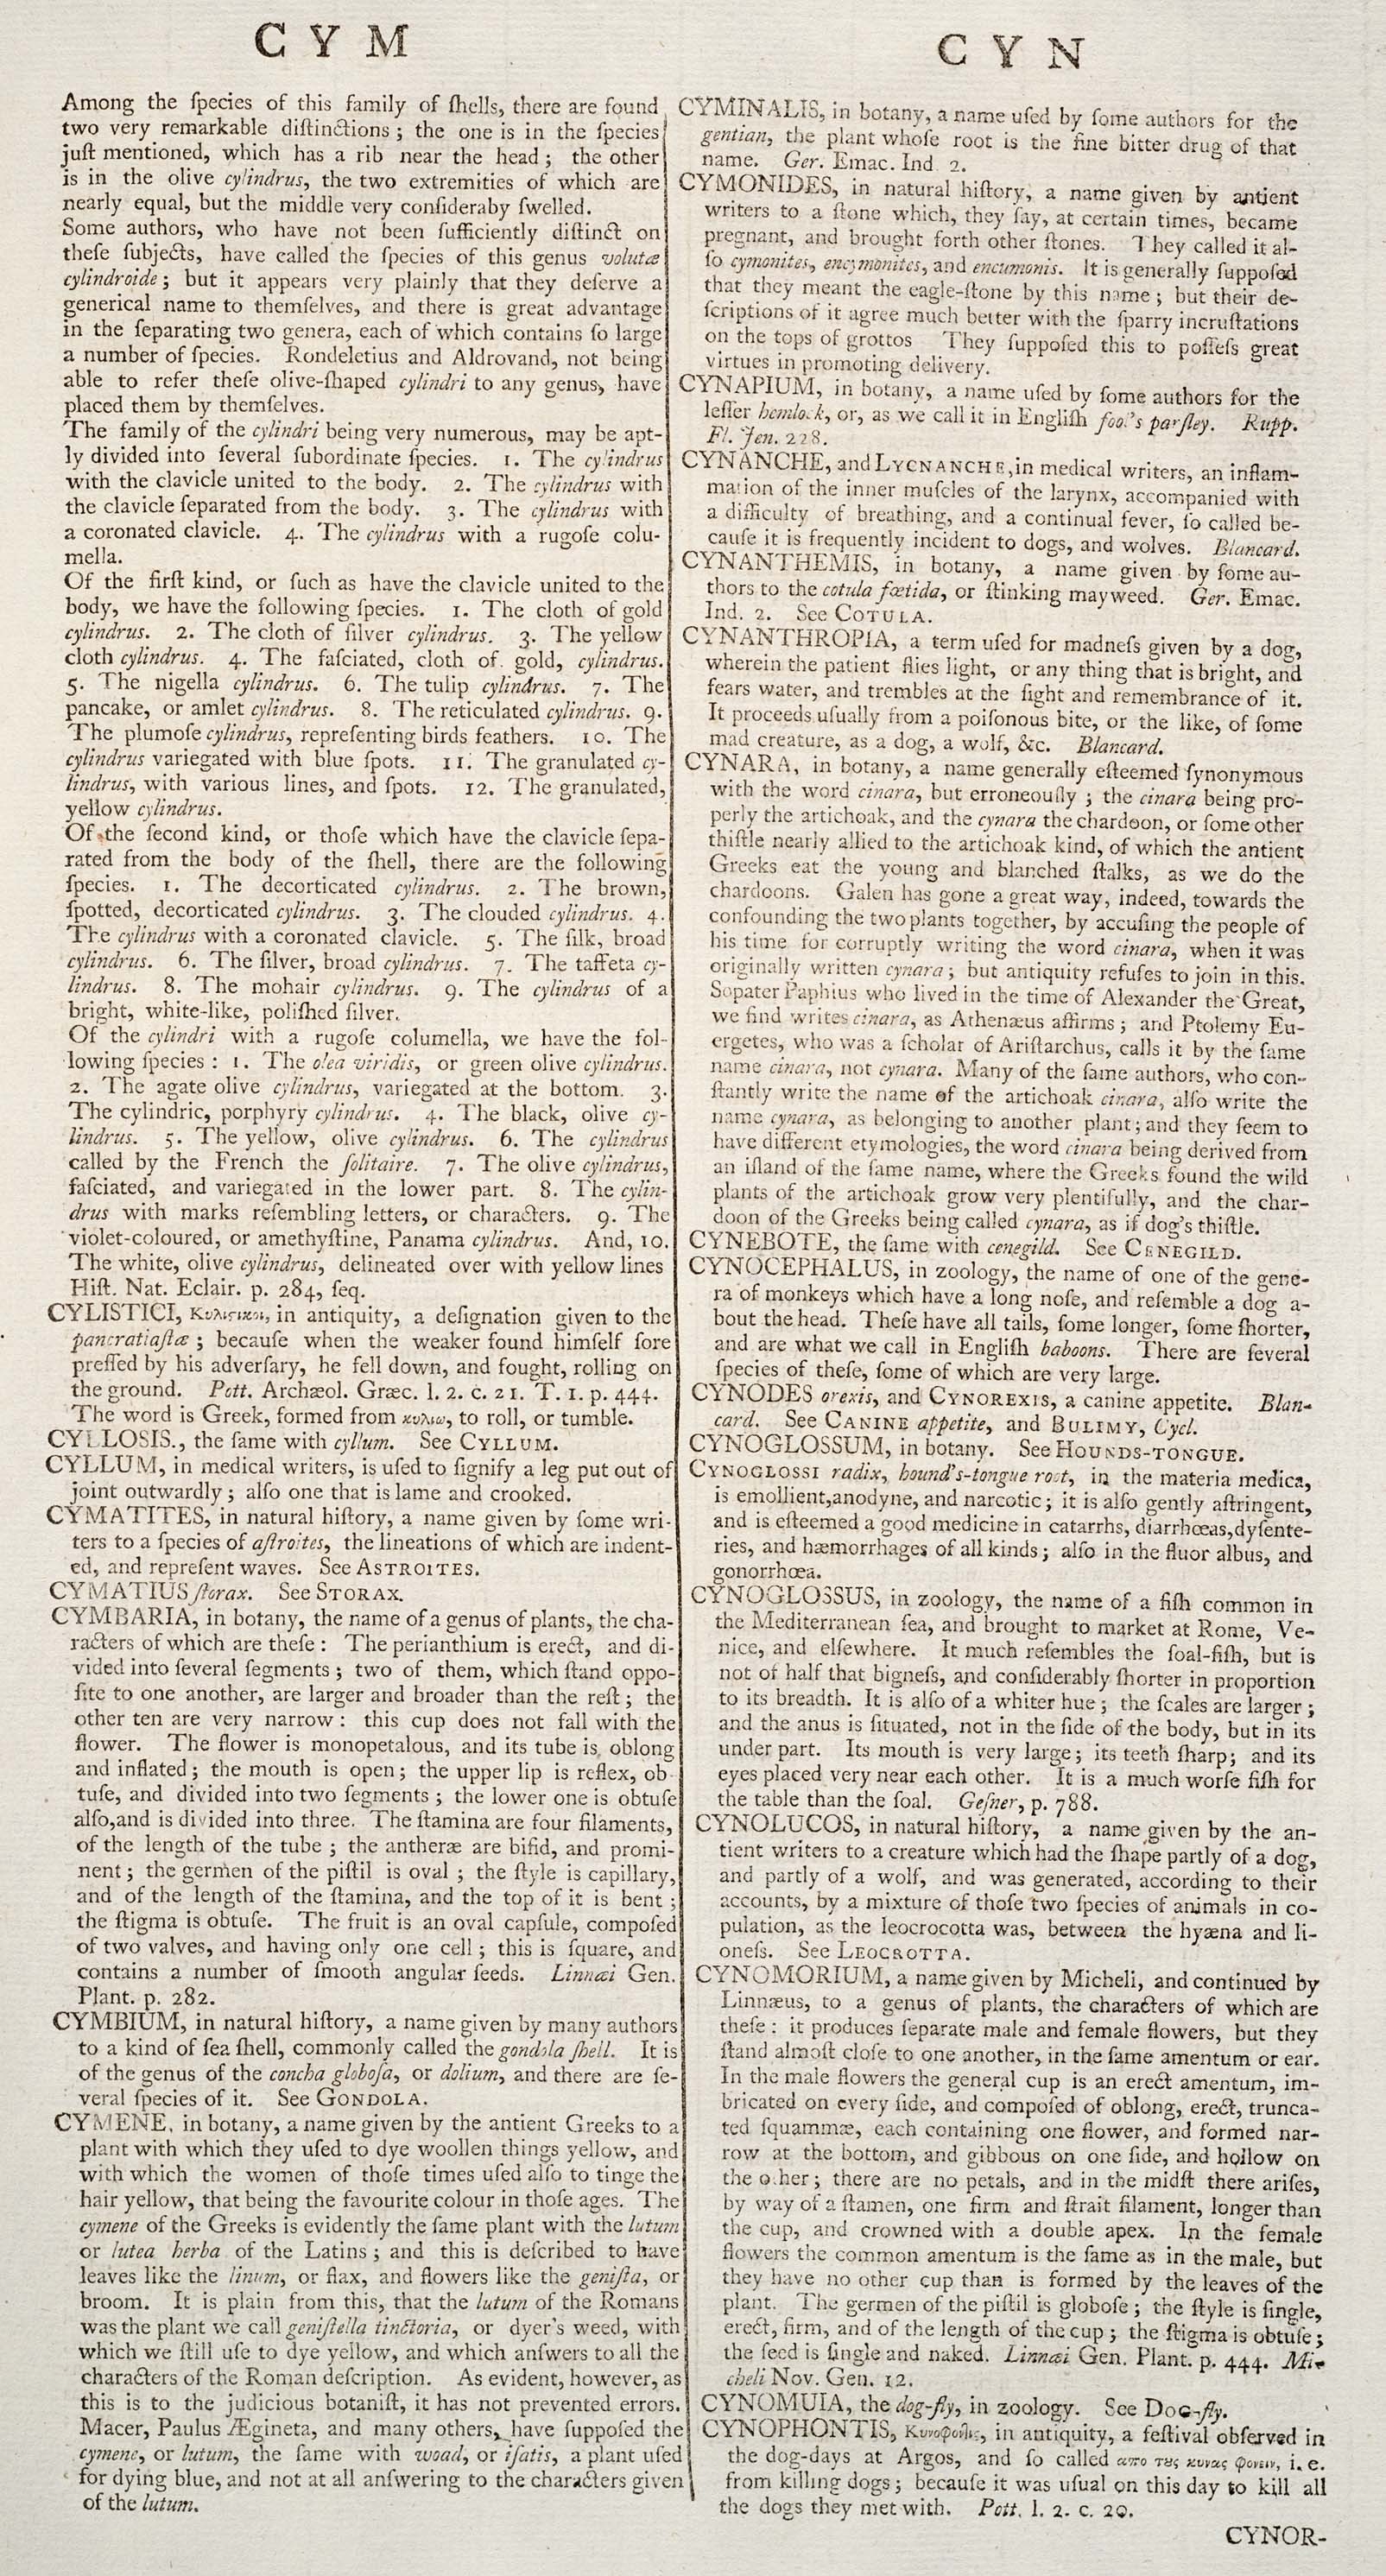 C Y M
Among the ſpecies of this family of ſhells, there are found
two very remarkable diſtinctions; the one is in the ſpecies
juſt mentioned, which has a rib near the head; the other
is in the olive cylindrus, the two extremities of which are
nearly equal, but the middle very conſideraby ſwelled.
Some authors, who have not been ſufficiently diſtinct on
theſe ſubjects, have called the ſpecies of this genus volutæ
cylindroide; but it appears very plainly that they deſerve a
generical name to themſelves, and there is great advantage
in the ſeparating two genera, each of which contains ſo large
a number of ſpecies. Rondeletius and Aldrovand, not being
able to refer theſe olive-ſhaped cylindri to any genus, have
placed them by themſelves.
The family of the cylindri being very numerous, may be apt-
ly divided into ſeveral ſubordinate ſpecies. 1. The cylindrus
with the clavicle united to the body. 2. The cylindrus with
the clavicle ſeparated from the body. 3. The cylindrus with
a coronated clavicle. 4. The cylindrus with a rugoſe colu-
mella.
Of the firſt kind, or ſuch as have the clavicle united to the
body, we have the following ſpecies. 1. The cloth of gold
cylindrus. 2. The cloth of ſilver cylindrus. 3. The yellow
cloth cylindrus. 4. The faſciated, cloth of gold, cylindrus.
5. The nigella cylindrus. 6. The tulip cylindrus. 7. The
pancake, or amlet cylindrus. 8. The reticulated cylindrus. 9.
The plumoſe cylindrus, repreſenting birds feathers. 10. The
cylindrus variegated with blue ſpots. 11. The granulated cy-
lindrus, with various lines, and ſpots. 12. The granulated,
yellow cylindrus.
Of the ſecond kind, or thoſe which have the clavicle ſepa-
rated from the body of the ſhell, there are the following
ſpecies. 1. The decorticated cylindrus. 2. The brown,
ſpotted, decorticated cylindrus. 3. The clouded cylindrus. 4.
The cylindrus with a coronated clavicle. 5. The ſilk, broad
cylindrus. 6. The ſilver, broad cylindrus. 7. The taffeta cy-
lindrus. 8. The mohair cylindrus. 9. The cylindrus of a
bright, white-like, poliſhed ſilver.
Of the cylindri with a rugoſe columella, we have the fol-
lowing ſpecies: 1. The olea viridis, or green olive cylindrus.
2. The agate olive cylindrus, variegated at the bottom. 3.
The cylindric, porphyry cylindrus. 4. The black, olive cy-
lindrus. 5. The yellow, olive cylindrus. 6. The cylindrus
called by the French the ſolitaire. 7. The olive cylindrus,
faſciated, and variegated in the lower part. 8. The cylin-
drus with marks reſembling letters, or characters. 9. The
violet-coloured, or amethyſtine, Panama cylindrus. And, 10.
The white, olive cylindrus, delineated over with yellow lines
Hiſt. Nat. Eclair. p. 284, ſeq.
CYLISTICI, Κυλιϛικοι, in antiquity, a deſignation given to the
pancratiaſtæ; becauſe when the weaker found himſelf ſore
preſſed by his adverſary, he fell down, and fought, rolling on
the ground. Pott. Archæol. Græc. l. 2. c. 21. T. 1. p. 444.
The word is Greek, formed from κυλιω, to roll, or tumble.
CYLLOSIS., the ſame with cyllum. See CYLLUM.
CYLLUM, in medical writers, is uſed to ſignify a leg put out of
joint outwardly; alſo one that is lame and crooked.
CYMATITES, in natural hiſtory, a name given by ſome wri-
ters to a ſpecies of aſtroites, the lineations of which are indent-
ed, and repreſent waves. See ASTROITES.
CYMATIUS ſtorax. See STORAX.
CYMBARIA, in botany, the name of a genus of plants, the cha-
racters of which are theſe: The perianthium is erect, and di-
vided into ſeveral ſegments; two of them, which ſtand oppo-
ſite to one another, are larger and broader than the reſt; the
other ten are very narrow: this cup does not fall with the
flower. The flower is monopetalous, and its tube is oblong
and inflated; the mouth is open; the upper lip is reflex, ob
tuſe, and divided into two ſegments; the lower one is obtuſe
alſo,and is divided into three. The ſtamina are four filaments,
of the length of the tube; the antheræ are bifid, and promi-
nent; the germen of the piſtil is oval; the ſtyle is capillary,
and of the length of the ſtamina, and the top of it is bent;
the ſtigma is obtuſe. The fruit is an oval capſule, compoſed
of two valves, and having only one cell; this is ſquare, and
contains a number of ſmooth angular ſeeds. Linnæi Gen.
Plant. p. 282.
CYMBIUM, in natural hiſtory, a name given by many authors
to a kind of ſea ſhell, commonly called the gondola ſhell. It is
of the genus of the concha globoſa, or dolium, and there are ſe-
veral ſpecies of it. See GONDOLA.
CYMENE, in botany, a name given by the antient Greeks to a
plant with which they uſed to dye woollen things yellow, and
with which the women of thoſe times uſed alſo to tinge the
hair yellow, that being the favourite colour in thoſe ages. The
cymene of the Greeks is evidently the ſame plant with the lutum
or lutea herba of the Latins; and this is deſcribed to have
leaves like the linum, or flax, and flowers like the geniſta, or
broom. It is plain from this, that the lutum of the Romans
was the plant we call geniſtella tinctoria, or dyer's weed, with
which we ſtill uſe to dye yellow, and which anſwers to all the
characters of the Roman deſcription. As evident, however, as
this is to the judicious botaniſt, it has not prevented errors.
Macer, Paulus Ægineta, and many others, have ſuppoſed the
cymene, or lutum, the ſame with woad, or iſatis, a plant uſed
for dying blue, and not at all anſwering to the characters given
of the lutum.
C Y N
CYMINALIS, in botany, a name uſed by ſome authors for the
gentian, the plant whoſe root is the fine bitter drug of that
name. Ger. Emac. Ind 2.
CYMONIDES, in natural hiſtory, a name given by antient
writers to a ſtone which, they ſay, at certain times, became
pregnant, and brought forth other ſtones. They called it al-
ſo cymonites, encymonites, and encumonis. It is generally ſuppoſed
that they meant the eagle-ſtone by this name; but their de-
ſcriptions of it agree much better with the ſparry incruſtations
on the tops of grottos They ſuppoſed this to poſſeſs great
virtues in promoting delivery.
CYNAPIUM, in botany, a name uſed by ſome authors for the
leſſer hemlock, or, as we call it in Engliſh fool's parſley. Rupp.
Fl. Jen. 228.
CYNANCHE, and LYCNANCHE, in medical writers, an inflam-
mation of the inner muſcles of the larynx, accompanied with
a difficulty of breathing, and a continual fever, ſo called be-
cauſe it is frequently incident to dogs, and wolves. Blancard.
CYNANTHEMIS, in botany, a name given by ſome au-
thors to the cotula fœtida, or ſtinking mayweed. Ger. Emac.
Ind. 2. See COTULA.
CYNANTHROPIA, a term uſed for madneſs given by a dog,
wherein the patient flies light, or any thing that is bright, and
fears water, and trembles at the ſight and remembrance of it.
It proceeds uſually from a poiſonous bite, or the like, of ſome
mad creature, as a dog, a wolf, &c. Blancard.
CYNARA, in botany, a name generally eſteemed ſynonymous
with the word cinara, but erroneouſly; the cinara being pro-
perly the artichoak, and the cynara the chardoon, or ſome other
thiſtle nearly allied to the artichoak kind, of which the antient
Greeks eat the young and blanched ſtalks, as we do the
chardoons. Galen has gone a great way, indeed, towards the
confounding the two plants together, by accuſing the people of
his time for corruptly writing the word cinara, when it was
originally written cynara; but antiquity refuſes to join in this.
Sopater Paphius who lived in the time of Alexander the Great,
we find writes cinara, as Athenæus affirms; and Ptolemy Eu-
ergetes, who was a ſcholar of Ariſtarchus, calls it by the ſame
name cinara, not cynara. Many of the ſame authors, who con-
ſtantly write the name of the artichoak cinara, alſo write the
name cynara, as belonging to another plant; and they ſeem to
have different etymologies, the word cinara being derived from
an iſland of the ſame name, where the Greeks found the wild
plants of the artichoak grow very plentifully, and the char-
doon of the Greeks being called cynara, as if dog's thiſtle.
CYNEBOTE, the ſame with cenegild. See CENEGILD.
CYNOCEPHALUS, in zoology, the name of one of the gene-
ra of monkeys which have a long noſe, and reſemble a dog a-
bout the head. Theſe have all tails, ſome longer, ſome ſhorter,
and are what we call in Engliſh baboons. There are ſeveral
ſpecies of theſe, ſome of which are very large.
CYNODES orexis, and CYNOREXIS, a canine appetite. Blan-
card. See CANINE appetite, and BULIMY, Cycl.
CYNOGLOSSUM, in botany. See HOUNDS-TONGUE.
CYNOGLOSSI radix, hound's-tongue root, in the materia medica,
is emollient,anodyne, and narcotic; it is alſo gently aſtringent,
and is eſteemed a good medicine in catarrhs, diarrhœas,dyſente-
ries, and hæmorrhages of all kinds; alſo in the fluor albus, and
gonorrhœa.
CYNOGLOSSUS, in zoology, the name of a fiſh common in
the Mediterranean ſea, and brought to market at Rome, Ve-
nice, and elſewhere. It much reſembles the ſoal-fiſh, but is
not of half that bigneſs, and conſiderably ſhorter in proportion
to its breadth. It is alſo of a whiter hue; the ſcales are larger;
and the anus is ſituated, not in the ſide of the body, but in its
under part. Its mouth is very large; its teeth ſharp; and its
eyes placed very near each other. It is a much worſe fiſh for
the table than the ſoal. Geſner, p. 788.
CYNOLUCOS, in natural hiſtory, a name given by the an-
tient writers to a creature which had the ſhape partly of a dog,
and partly of a wolf, and was generated, according to their
accounts, by a mixture of thoſe two ſpecies of animals in co-
pulation, as the leocrocotta was, between the hyæna and li-
oneſs. See LEOCROTTA.
CYNOMORIUM, a name given by Micheli, and continued by
Linnæus, to a genus of plants, the characters of which are
theſe: it produces ſeparate male and female flowers, but they
ſtand almoſt cloſe to one another, in the ſame amentum or ear.
In the male flowers the general cup is an erect amentum, im-
bricated on every ſide, and compoſed of oblong, erect, trunca-
ted ſquammæ, each containing one flower, and formed nar-
row at the bottom, and gibbous on one ſide, and hollow on
the other; there are no petals, and in the midſt there ariſes,
by way of a ſtamen, one firm and ſtrait filament, longer than
the cup, and crowned with a double apex. In the female
flowers the common amentum is the ſame as in the male, but
they have no other cup than is formed by the leaves of the
plant. The germen of the piſtil is globoſe; the ſtyle is ſingle,
erect, firm, and of the length of the cup; the ſtigma is obtuſe;
the ſeed is ſingle and naked. Linnæi Gen. Plant. p. 444. Mi-
cheli Nov. Gen. 12.
CYNOMUIA, the dog-fly, in zoology. See DOG-fly.
CYNOPHONTIS, Κυνοφονλις, in antiquity, a feſtival obſerved in
the dog-days at Argos, and ſo called απο τȣς κυνας φονειν, i. e.
from killing dogs; becauſe it was uſual on this day to kill all
the dogs they met with. Pott. l. 2. c. 20.
CYNOR-